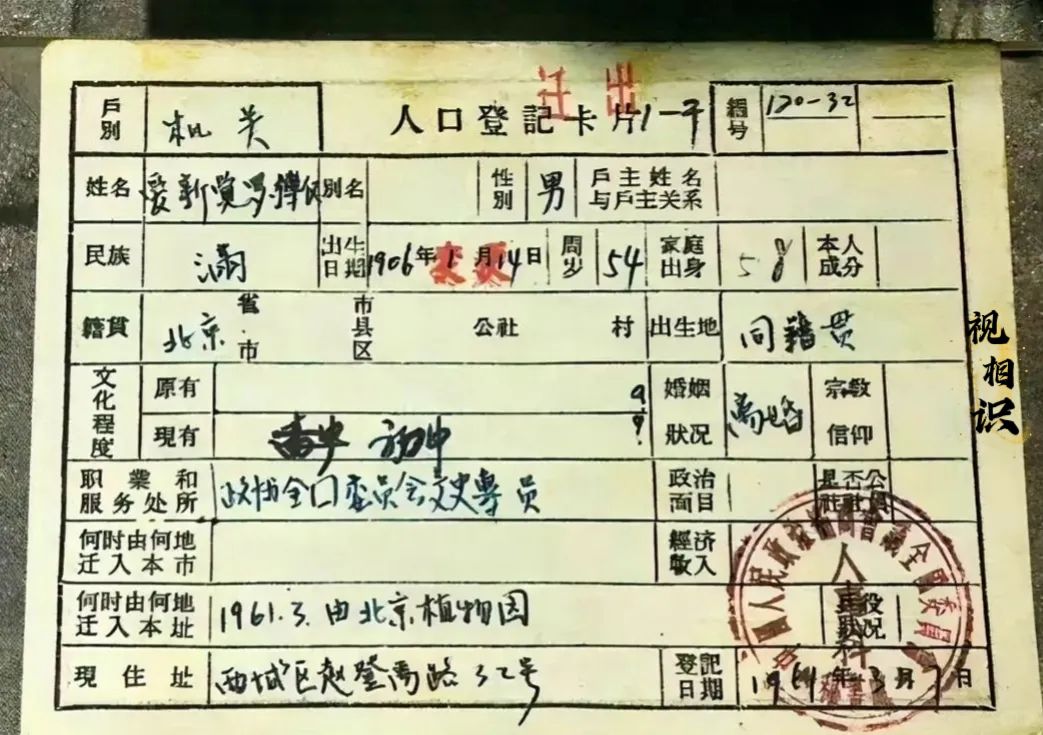 迁出
戶別 机关 人口登記卡片 1-于 編号 170-32
姓名 爱新觉罗 別名 性別 男 戶主姓名与戶主关系
民族 满 出生日期 1906年1月14日 变更 周岁 54 家庭出身 58 本人成分
籍貫 北京 省市 市县区 公社 村 出生地 同籍贯
文化程度 原有 婚姻狀况 离婚 宗教信仰
現有 初中
职業和服务处所 政协全国委员会文史專员 政治面目 是否公社社員
何时由何地迁入本市 經济收入
何时由何地迁入本址 1961.3.由北京植物园 兵役狀况
現住址 西城区赵登禹路32号 登記日期 1964年3月7日
中國人民政治協商會議全國委員會
人事科
視相识